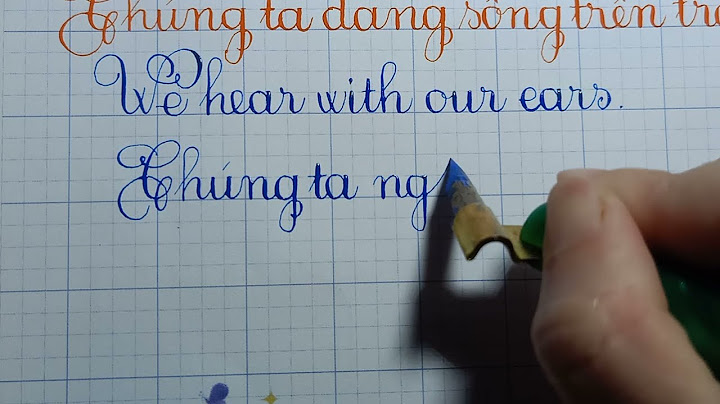 Chúng ta đang sống trên tr
We hear with our ears.
Chúng ta ng